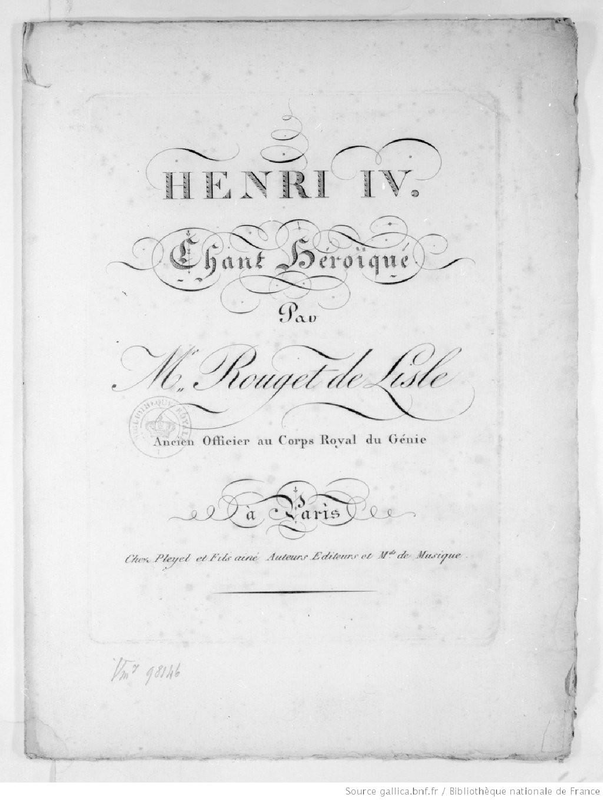 HENRI IV.
Chant Héroïqué
Par
Mr. Rouget de Lisle
Ancien Officier au Corps Royal du Génie
à Paris
Chez Pleyel et Fils ainé Auteurs Editeurs et Mds de Musique.
Vm7 98146
Source gallica.bnf.fr / Bibliothèque nationale de France